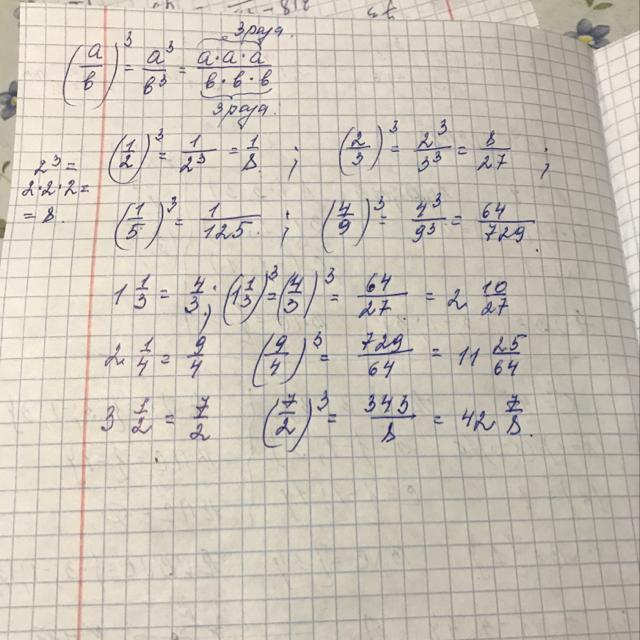 3 раза.
(a/b)³ = a³/b³ = a·a·a/b·b·b
3 раза.
2³ = 2·2·2 = = 8.
(1/2)³ = 1/2³ = 1/8 ; (2/3)³ = 2³/3³ = 8/27 ;
(1/5)³ = 1/125. ; (4/9)³ = 4³/9³ = 64/729.
1 1/3 = 4/3; (1 1/3)³ = (4/3)³ = 64/27 = 2 10/27
2 1/4 = 9/4 (9/4)³ = 729/64 = 11 25/64
3 1/2 = 7/2 (7/2)³ = 343/8 = 42 7/8.